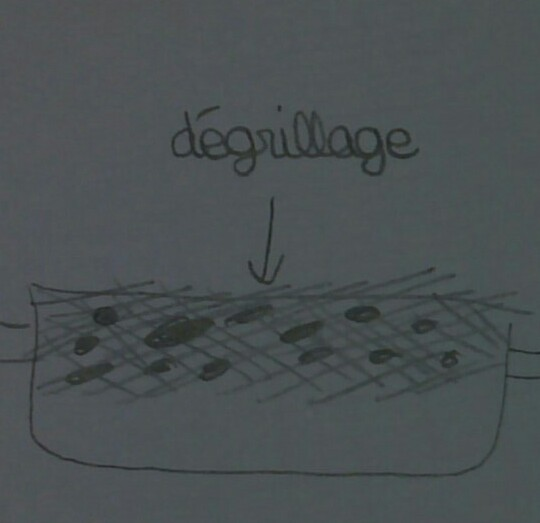 dégrillage